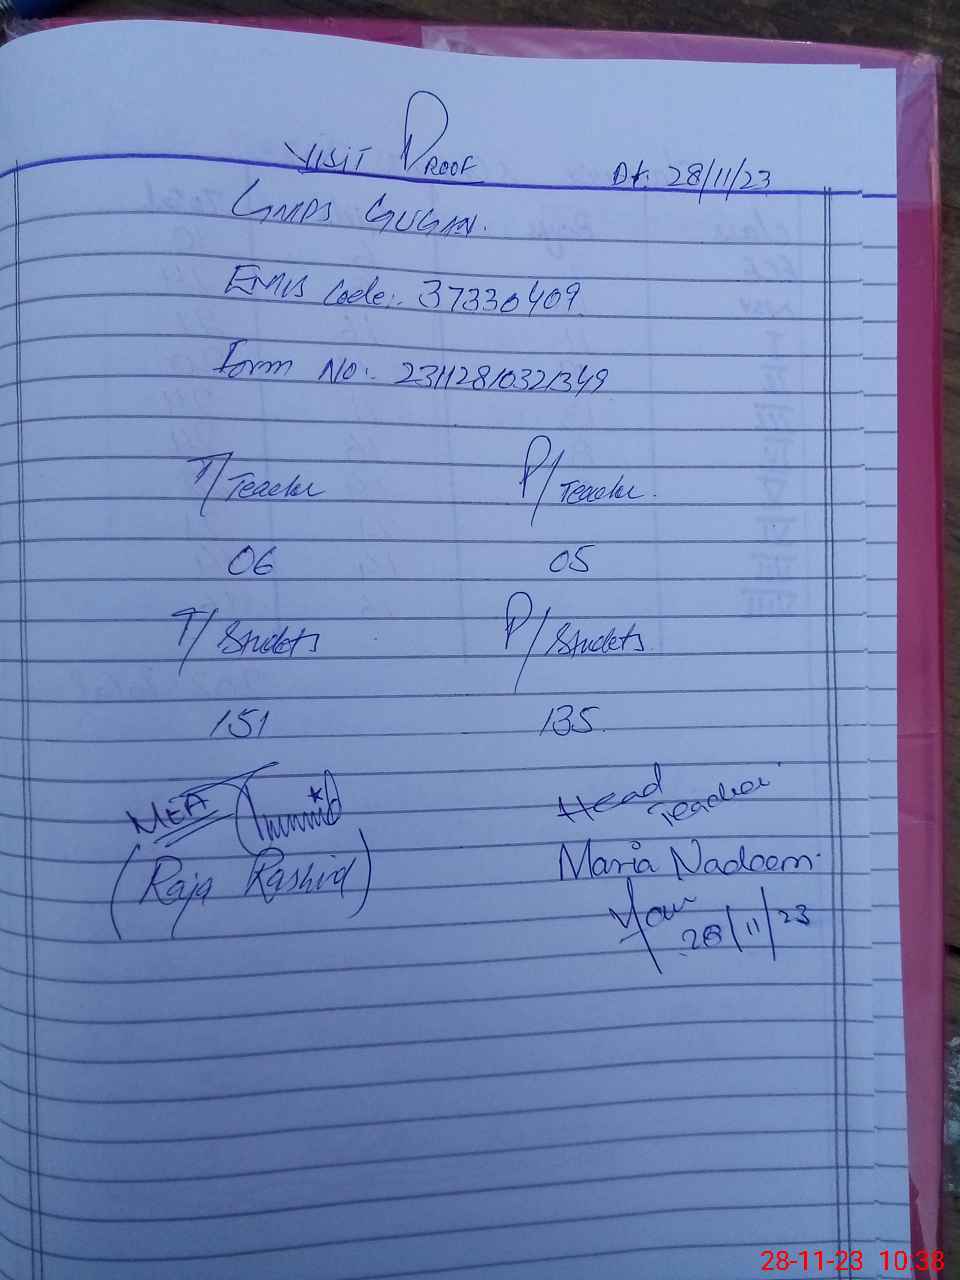 VISIT PROOF Dt: 28/11/23
GMPS GUGAN.
EMIS Code:. 37330409
Form No:. 23112810321349
T/Teacher P/Teacher.
06 05
T/Students P/Students.
151 135.
MEA Head Teacher
(Raja Rashid) Maria Nadeem.
28/11/23
28-11-23 10:38